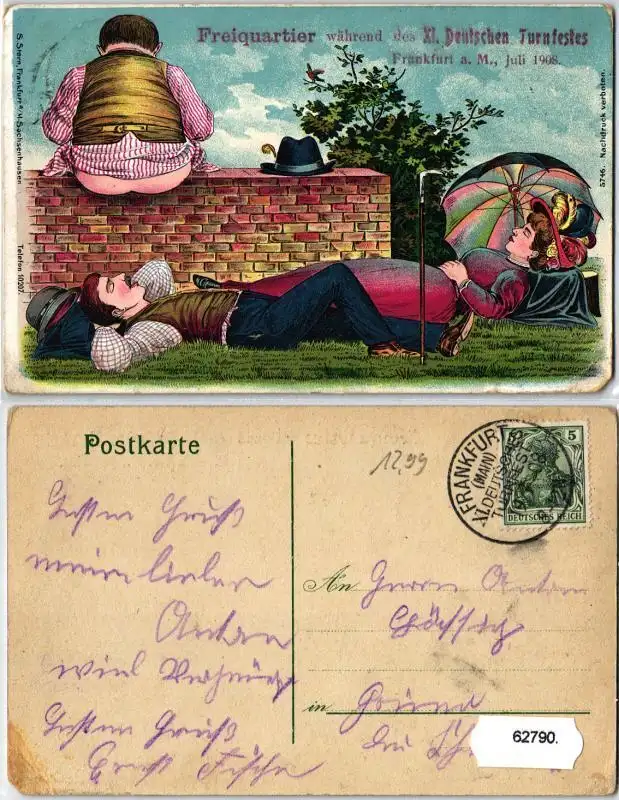 Freiquartier während des XI. Deutschen Turnfestes
Frankfurt a. M., Juli 1908.
S. Stern, Frankfurt a/M-Sachsenhausen
Telefon 10207.
5746. Nachdruck verboten.
Postkarte
12,99
FRANKFURT
(MAIN)
XI. DEUTSCHES
5
DEUTSCHES REICH
Besten Gruß
meine lieber
Anton
viel Vergnüg
Besten Gruß
Ernst Fische
An Herrn Anton
in
62790.